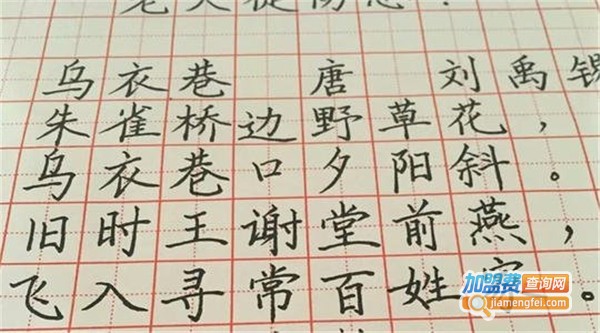 乌衣巷 唐 刘禹锡
朱雀桥边野草花，
乌衣巷口夕阳斜。
旧时王谢堂前燕，
飞入寻常百姓家。
加盟费查询网
jiamengfei.com